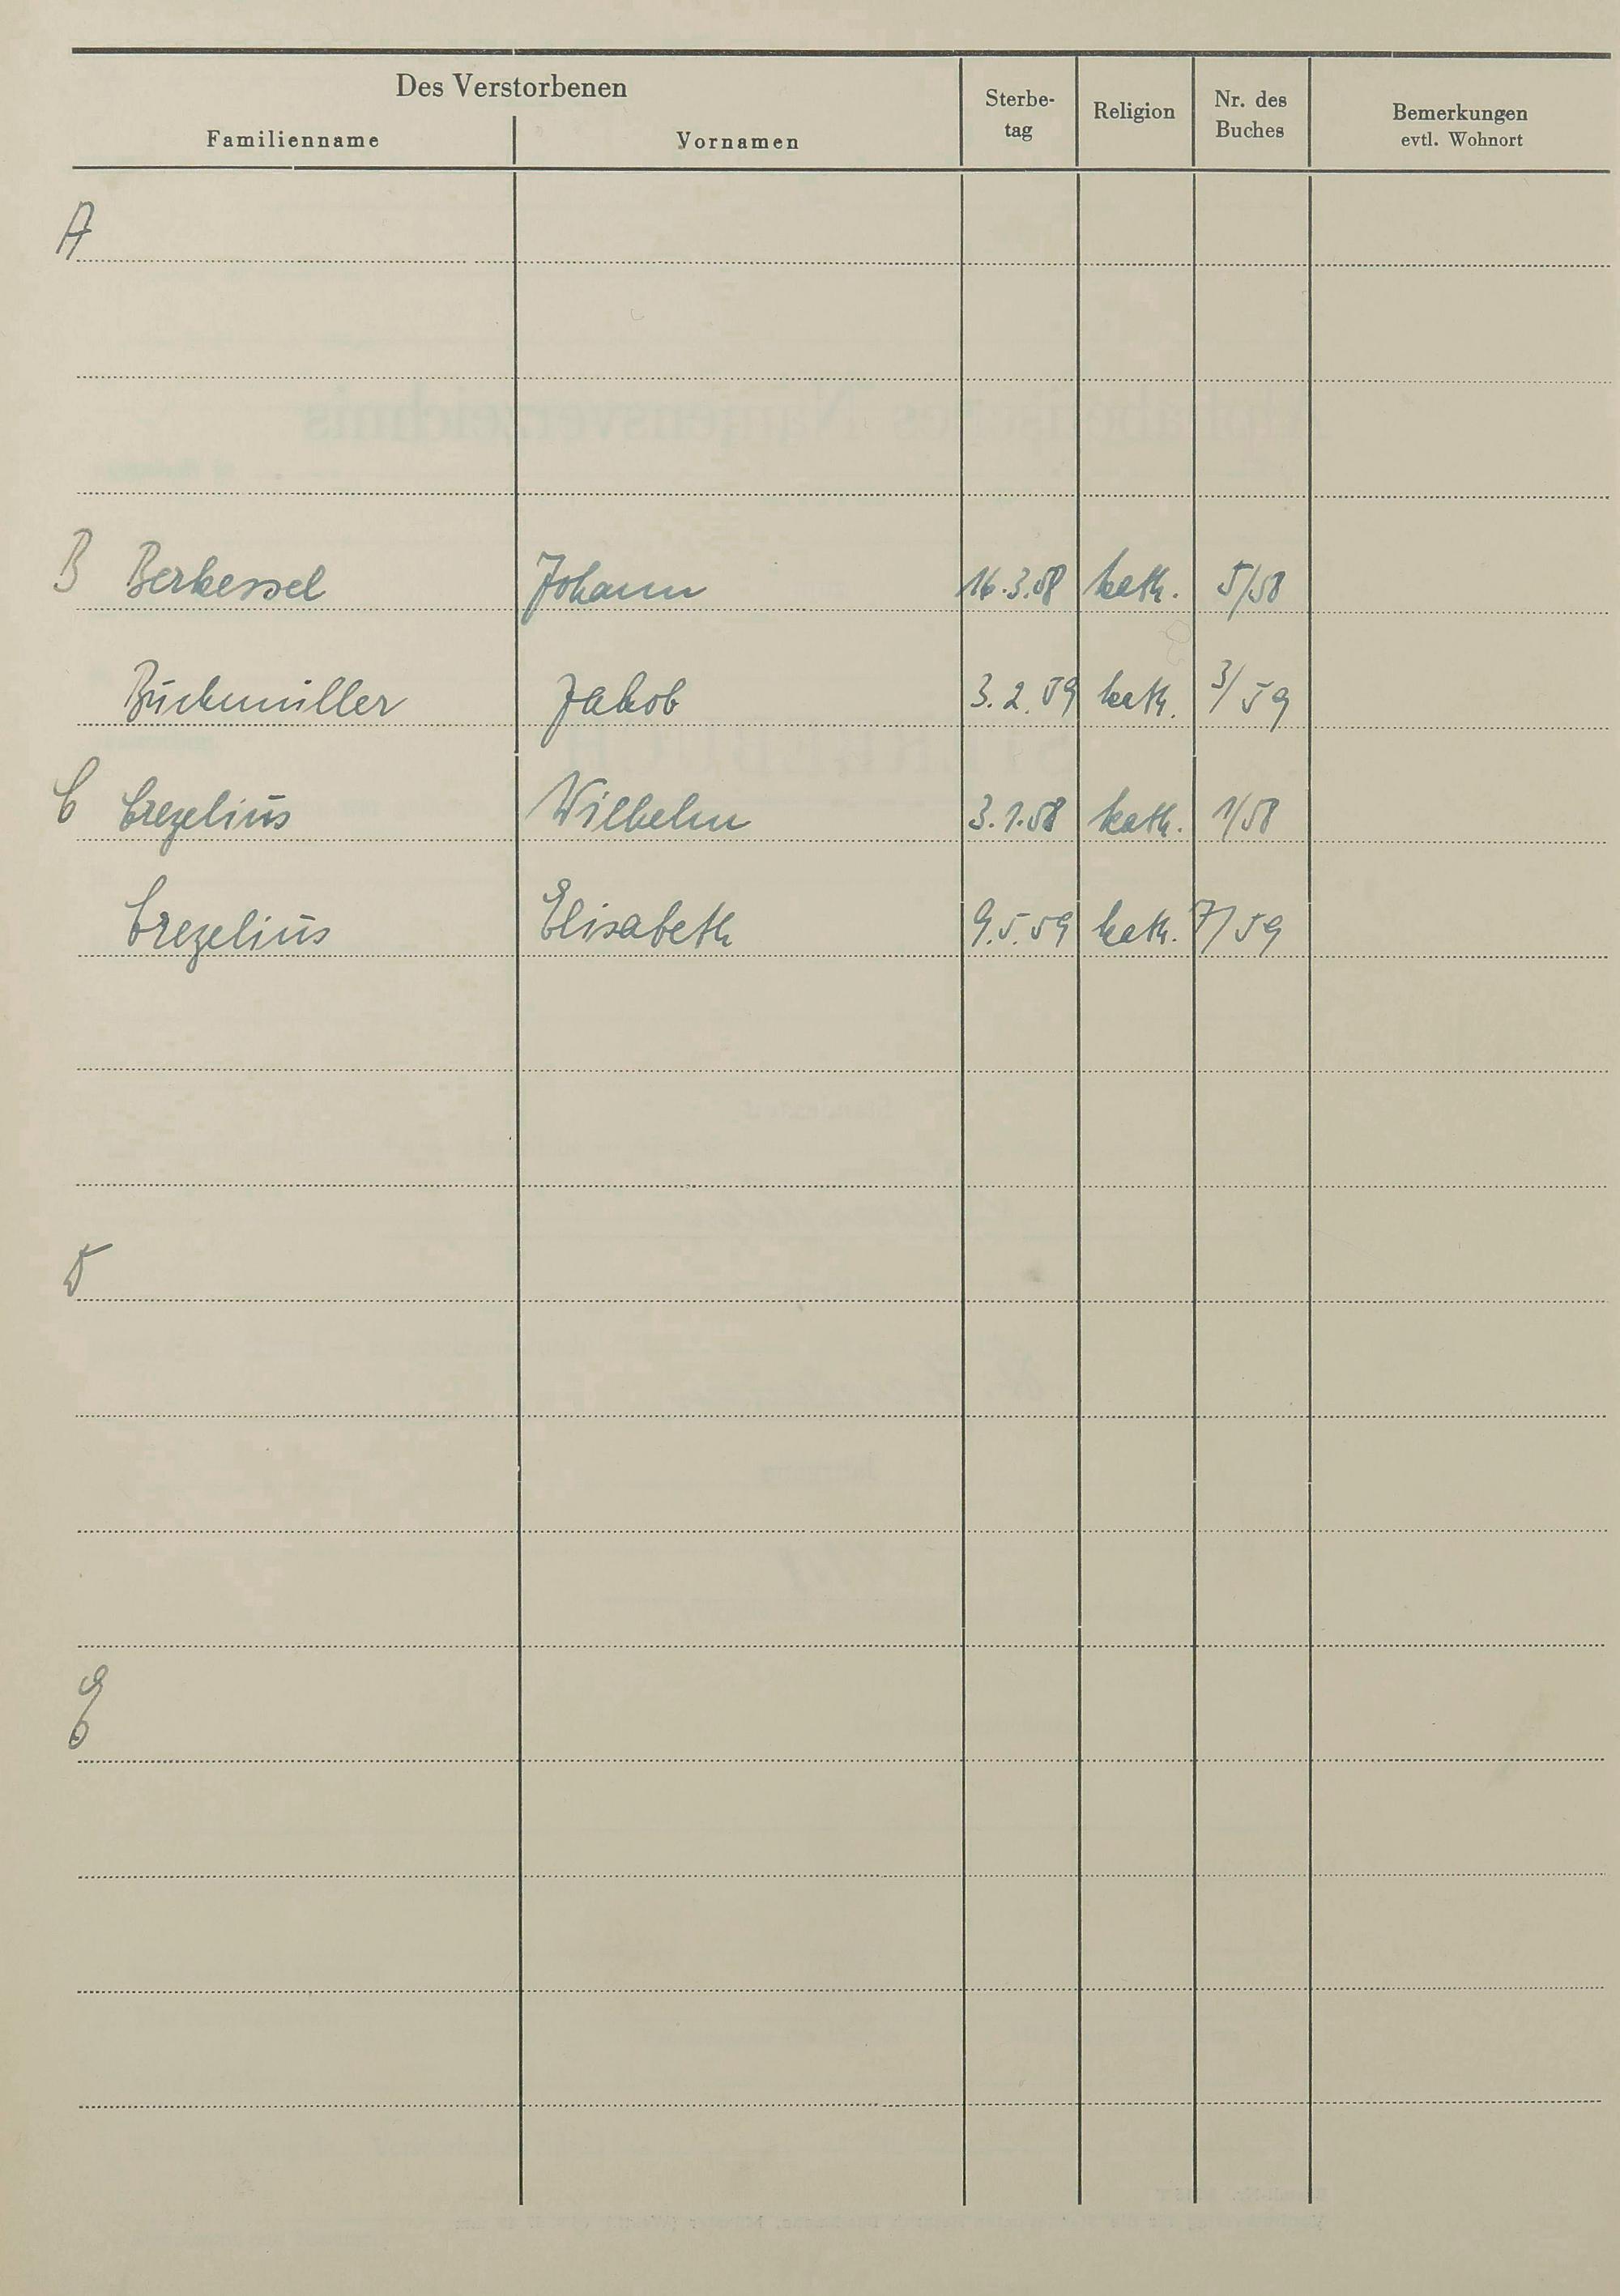 Des Verstorbenen
Familienname Vornamen Sterbe-tag Religion Nr. des Buches Bemerkungen evtl. Wohnort
A
B Berkessel Johann 16.3.58 kath. 5/58
Buckmüller Jakob 3.2.59 kath. 3/59
C Crezelius Wilhelm 3.1.58 kath. 1/58
Crezelius Elisabeth 9.5.59 kath. 7/59
D
E